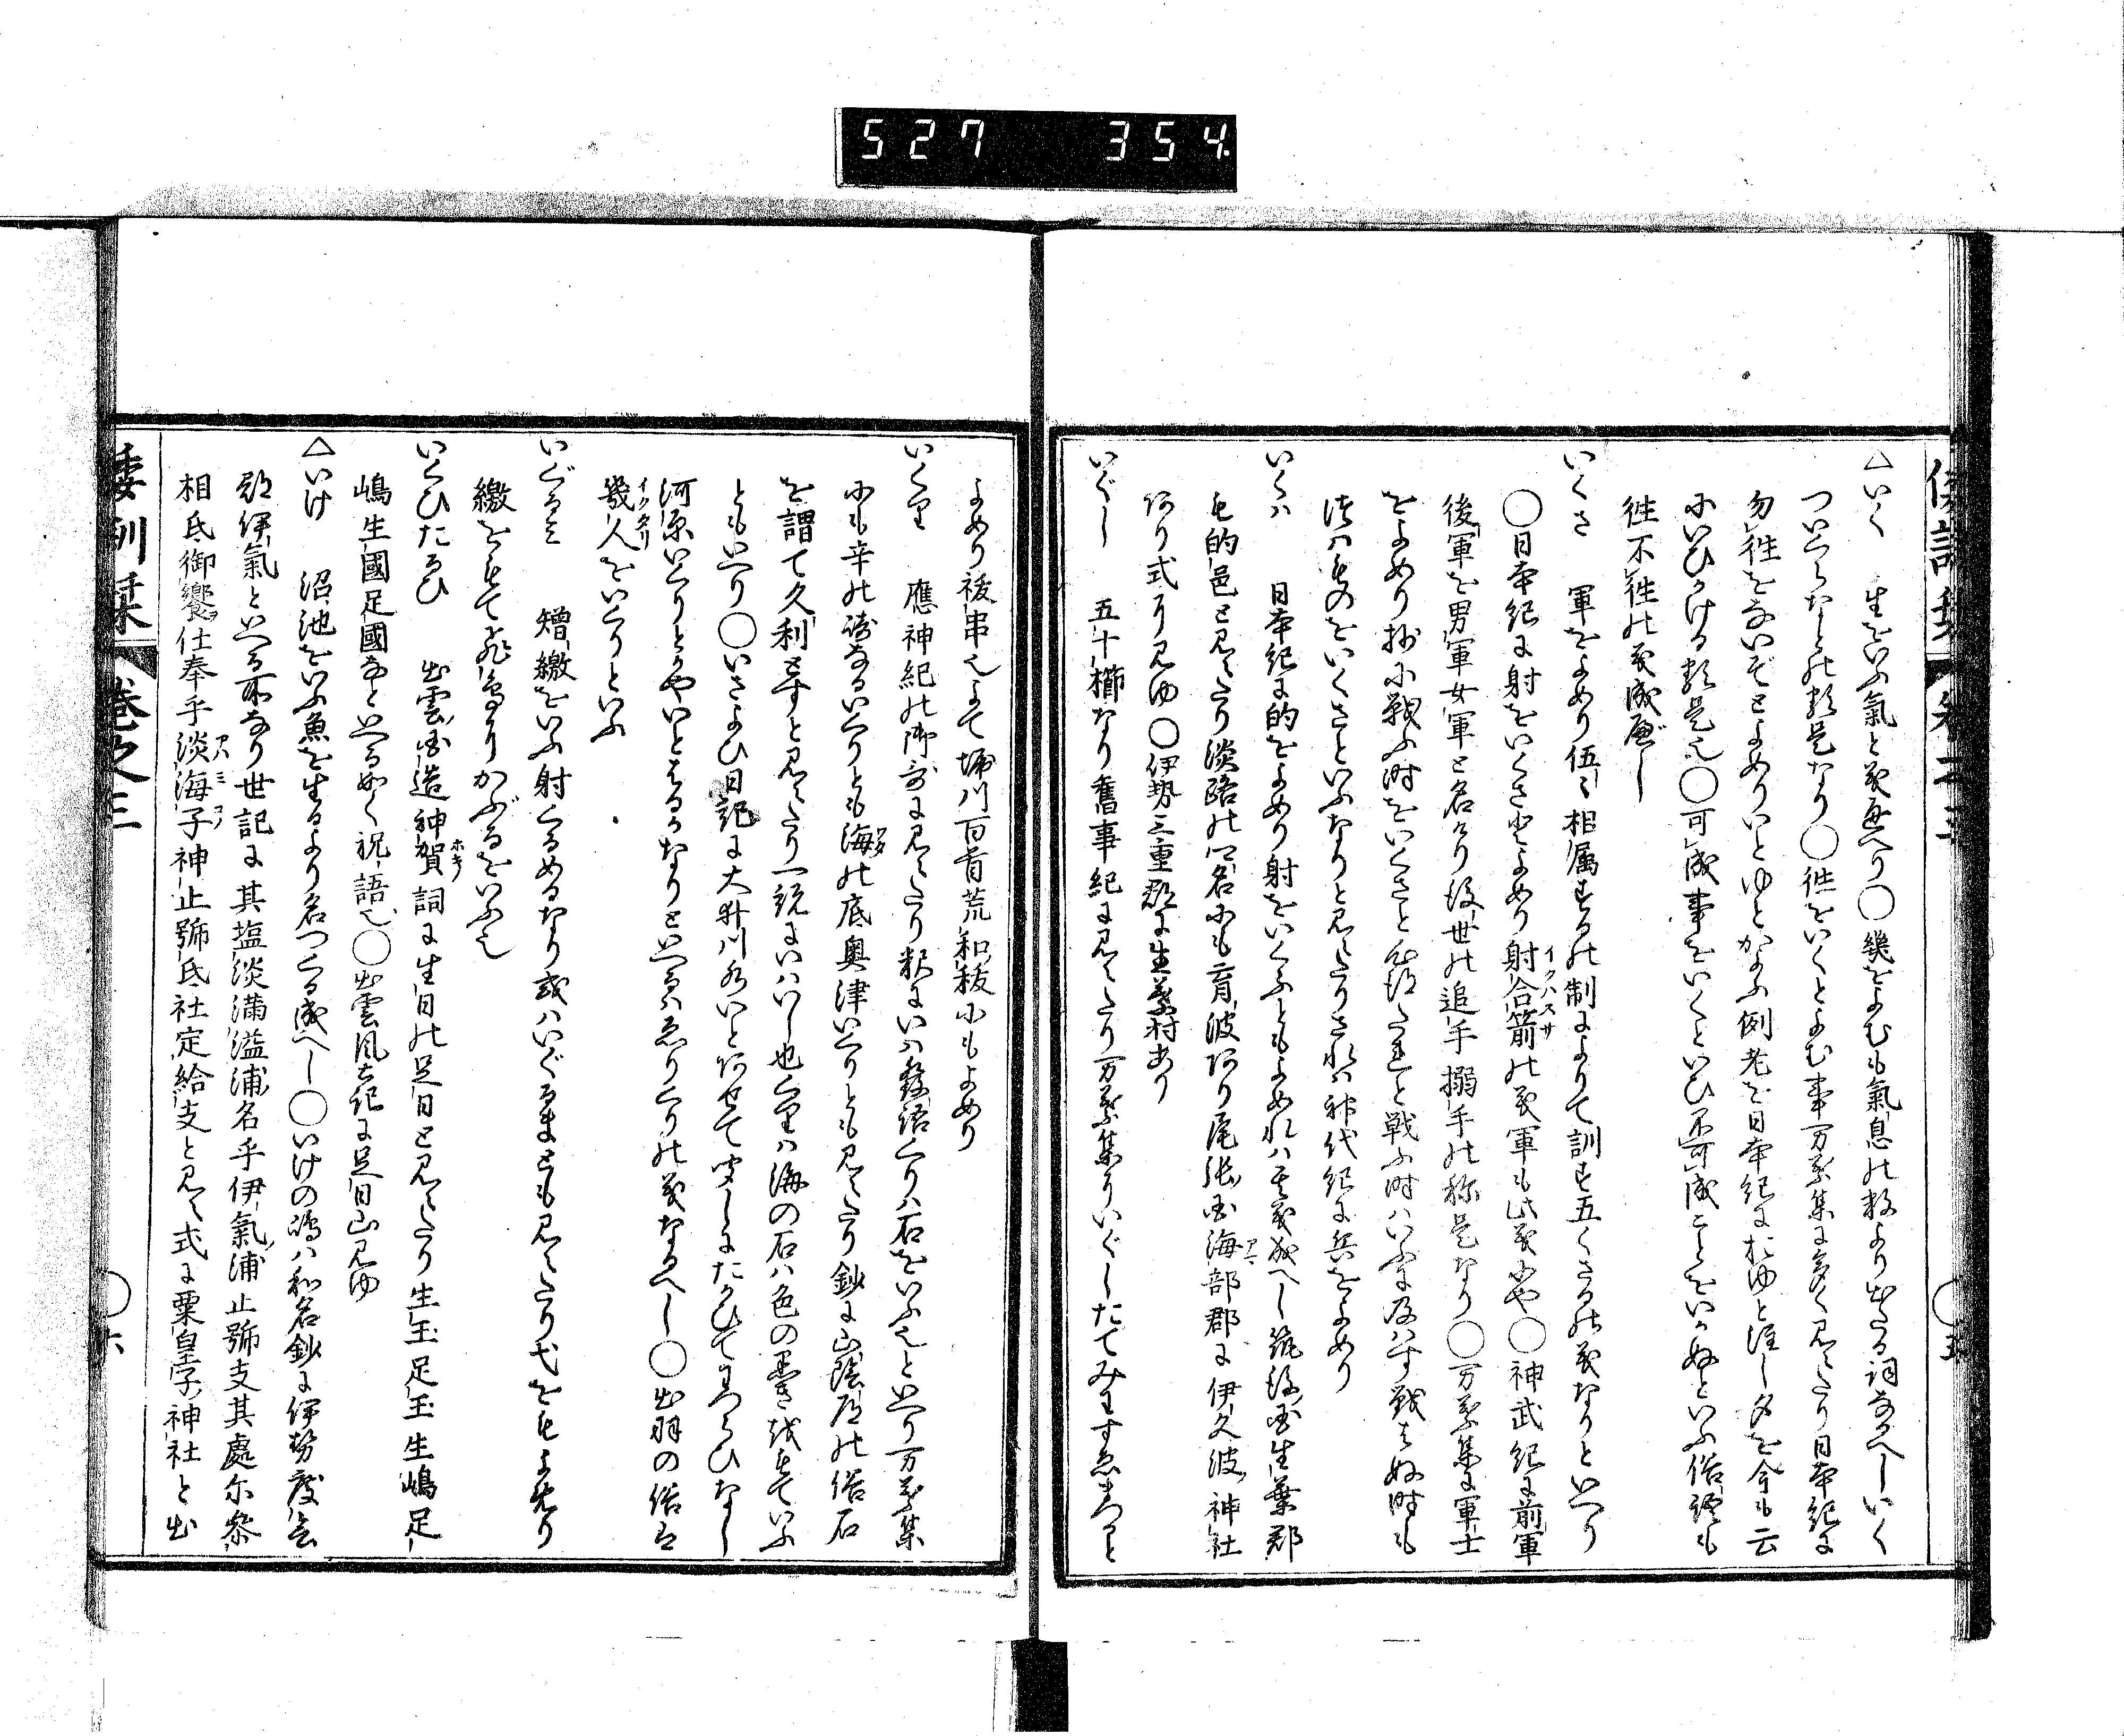 527 354
△いく　生をいふ氣と義通へり○幾をよむも氣息の数より出たる詞なるへしいく
ついくらなとの類是なり○徃をいくとよむ事万葉集に多く見えたり日本紀に
勿徃をないそとよめりいとゆとかよふ例老を日本紀におゆと注し夕を今も云
にいひかける類是也○可成事をいくといひ不可成ことをいかぬといふ俗語も
徃不徃の義成へし
いくさ　軍をよめり伍々相属するの制によりて訓す五くさの義なりといへり
○日本紀に射をいくさとよめり射合箭の義軍も此義にや○神武紀に前軍
イクハスサ
後軍を男軍女軍と名けり後世の追手搦手の称是なり○万葉集に軍士
をよめり抑に戦ふ時をいくさと心得たると戦ふ時はいふに及はす戦はぬ時も
徒はものをいくさといふなりと見えたりされは神代紀に兵をよめり
いくは　日本紀に的をよめり射をいくふともよめれは其義成へし筑後国生葉郡
も的邑と見えたり淡路の名にも育波あり尾張国海部郡に伊久波神社
あり式に見ゆ○伊勢三重郡に生桑村あり
いぐし　五十櫛なり舊事紀に見えたり万葉集にいぐしたてみわすゑまつると
よめり祓串也よて堀川百首荒和祓にもよめり
いくり　應神紀の御哥に見えたり釈にいは發語くりは石をいふ也といへり万葉集
にも辛の崎なるいくりとも海の底奥津いくりとも見えたり鈔に山陰道の俗石
を謂て久利とすと見えたり一説にいはいし也くりは海の石は色の黒き越もていふ
ともいへり○いさよひ日記に大井川水いとあせて聞しにたかひてわつらひなし
河原いくりとかやいとはるかなりといへるはゑりくりの義なるへし○出羽の俗に
幾人をいくりといふ
イクタリ
いぐるみ　矰繳をいふ射くるめるなり或はいぐるまとも見えたり弋をもよめり
繳をもて飛鳥にかぶるをいふ也
いくひたるひ　出雲国造神賀詞に生日の足日と見えたり生玉足玉生嶋足
ホキ
嶋生國足國なといへる如く祝語也○出雲風土記に足日山見ゆ
△いけ　沼池をいふ魚を生るより名つくる成へし○いけの嶋は和名鈔に伊勢度会
郡伊氣といへる所なり世記に其塩淡満溢浦名乎伊氣浦止號支其處尓参
相氐御饗仕奉乎淡海子神止號氐社定給支と見え式に粟皇子神社と出
アハミコノ
倭訓栞　卷之三　○六